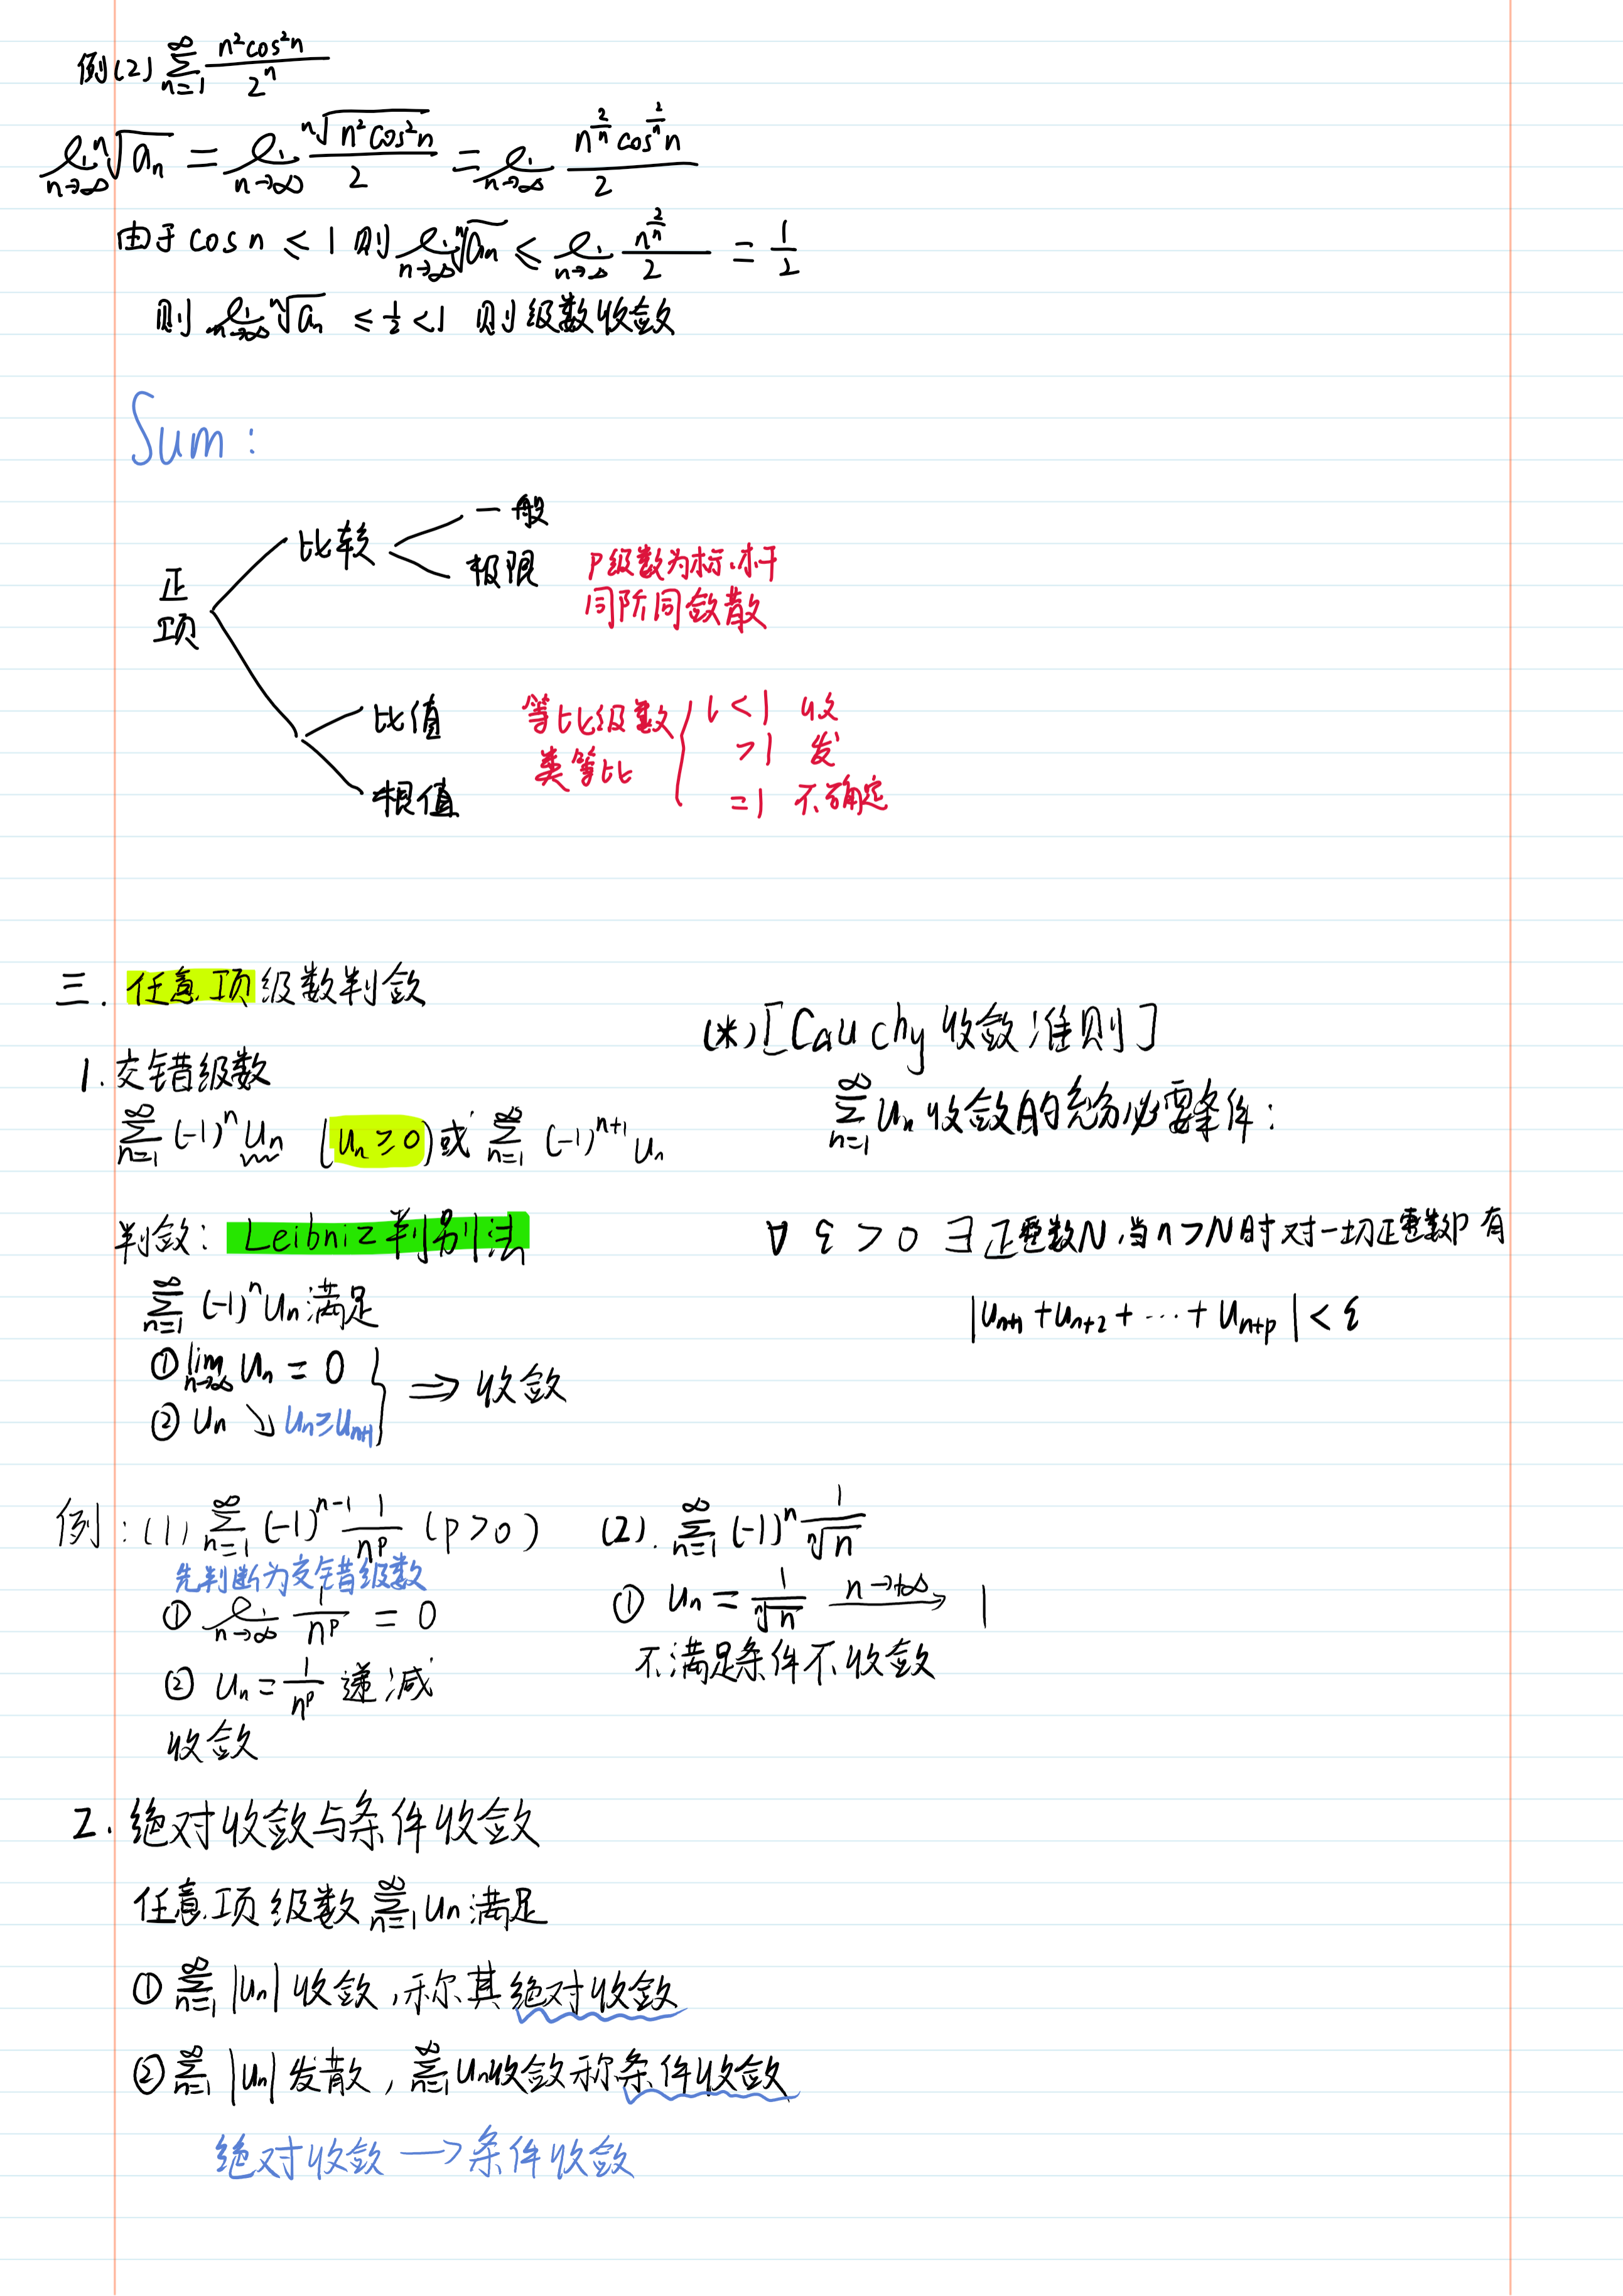 例(2) ∑_{n=1}^{∞} n²cos²n / 2ⁿ
lim_{n→∞} ⁿ√aₙ = lim_{n→∞} ⁿ√(n²cos²n) / 2 = lim_{n→∞} n^{2/n} cos^{2/n} n / 2
由于 cos n ≤ 1 则 lim_{n→∞} ⁿ√aₙ ≤ lim_{n→∞} n^{2/n} / 2 = 1/2
则 lim_{n→∞} ⁿ√aₙ ≤ 1/2 < 1 则级数收敛
Sum:
正项
比较
一般
极限
P级数为标杆
同阶同敛散
比值
根值
等比级数
类等比
l < 1 收
> 1 发
= 1 不确定
三. 任意项级数判敛
1. 交错级数
∑_{n=1}^{∞} (-1)ⁿ uₙ (uₙ ≥ 0) 或 ∑_{n=1}^{∞} (-1)^{n+1} uₙ
判敛: Leibniz判别法
∑_{n=1}^{∞} (-1)ⁿ uₙ 满足
① lim_{n→∞} uₙ = 0
② uₙ ↘ uₙ ≥ uₙ₊₁
⇒ 收敛
(*) [Cauchy 收敛准则]
∑_{n=1}^{∞} uₙ 收敛的充分必要条件:
∀ ε > 0 ∃ 正整数N, 当 n > N 时 对一切正整数P 有
|uₙ₊₁ + uₙ₊₂ + ··· + uₙ₊ₚ| < ε
例: (1) ∑_{n=1}^{∞} (-1)^{n-1} 1/n^p (p > 0)
先判断为交错级数
① lim_{n→∞} 1/n^p = 0
② uₙ = 1/n^p 递减
收敛
(2). ∑_{n=1}^{∞} (-1)ⁿ 1/ⁿ√n
① uₙ = 1/ⁿ√n —n→+∞→ 1
不满足条件不收敛
2. 绝对收敛与条件收敛
任意项级数 ∑_{n=1}^{∞} uₙ 满足
① ∑_{n=1}^{∞} |uₙ| 收敛, 称其绝对收敛
② ∑_{n=1}^{∞} |uₙ| 发散, ∑_{n=1}^{∞} uₙ 收敛称条件收敛
绝对收敛 → 条件收敛